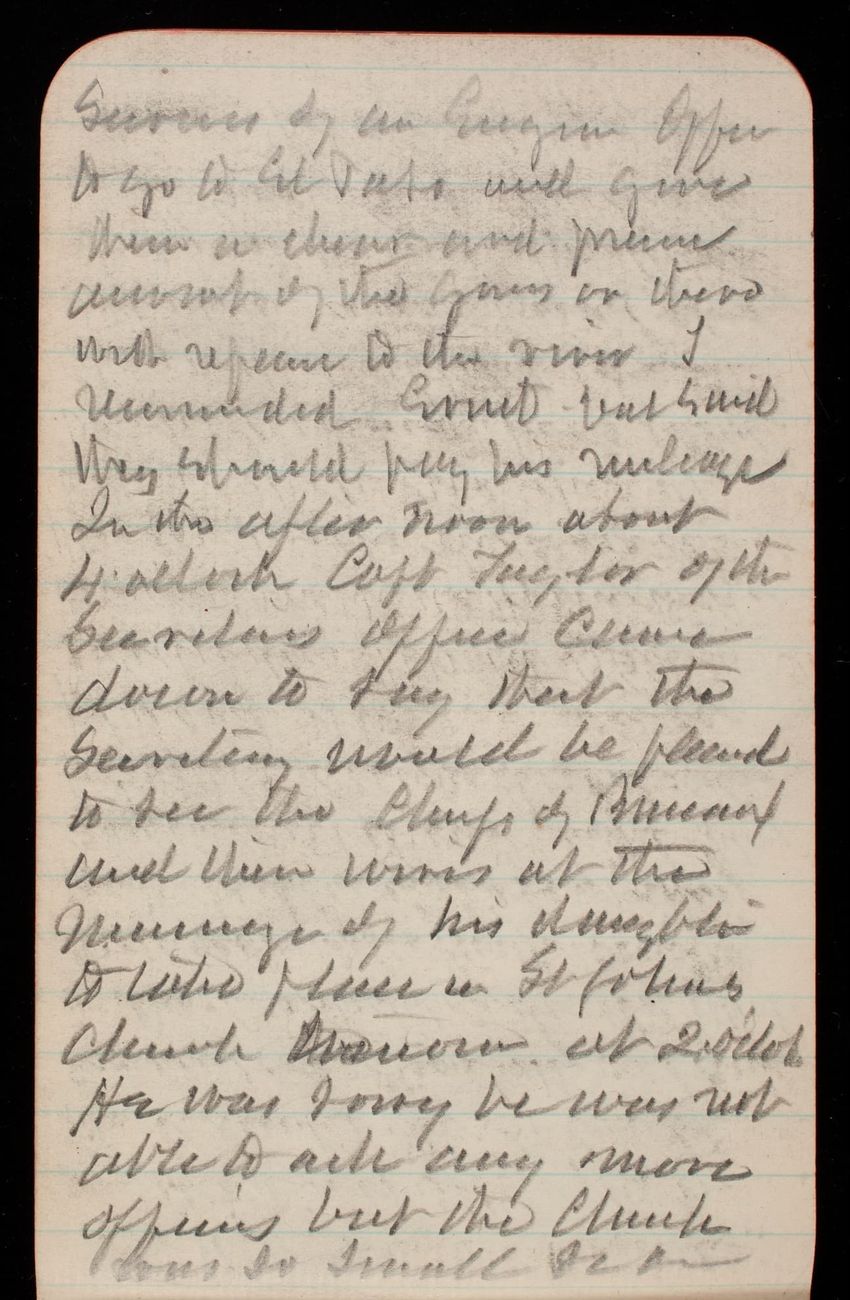 Services of an Engineer Officer
to go to El Paso and give
them a clear and precise
account of the Govt on there
with to the river I
recommended Ernst but said
they should pay his mileage
In the after noon about
4 oclock Capt Taylor of the
Secretarys Office Came
down to say that the
Secretary would be pleased
to see the Chiefs of Bureaux
and their wives at the
Marriage of his daughter
to take place in St Johns
Church tomorrow at 2 oclock
He was sorry he was not
able to ask any more
officers but the Church
was so small